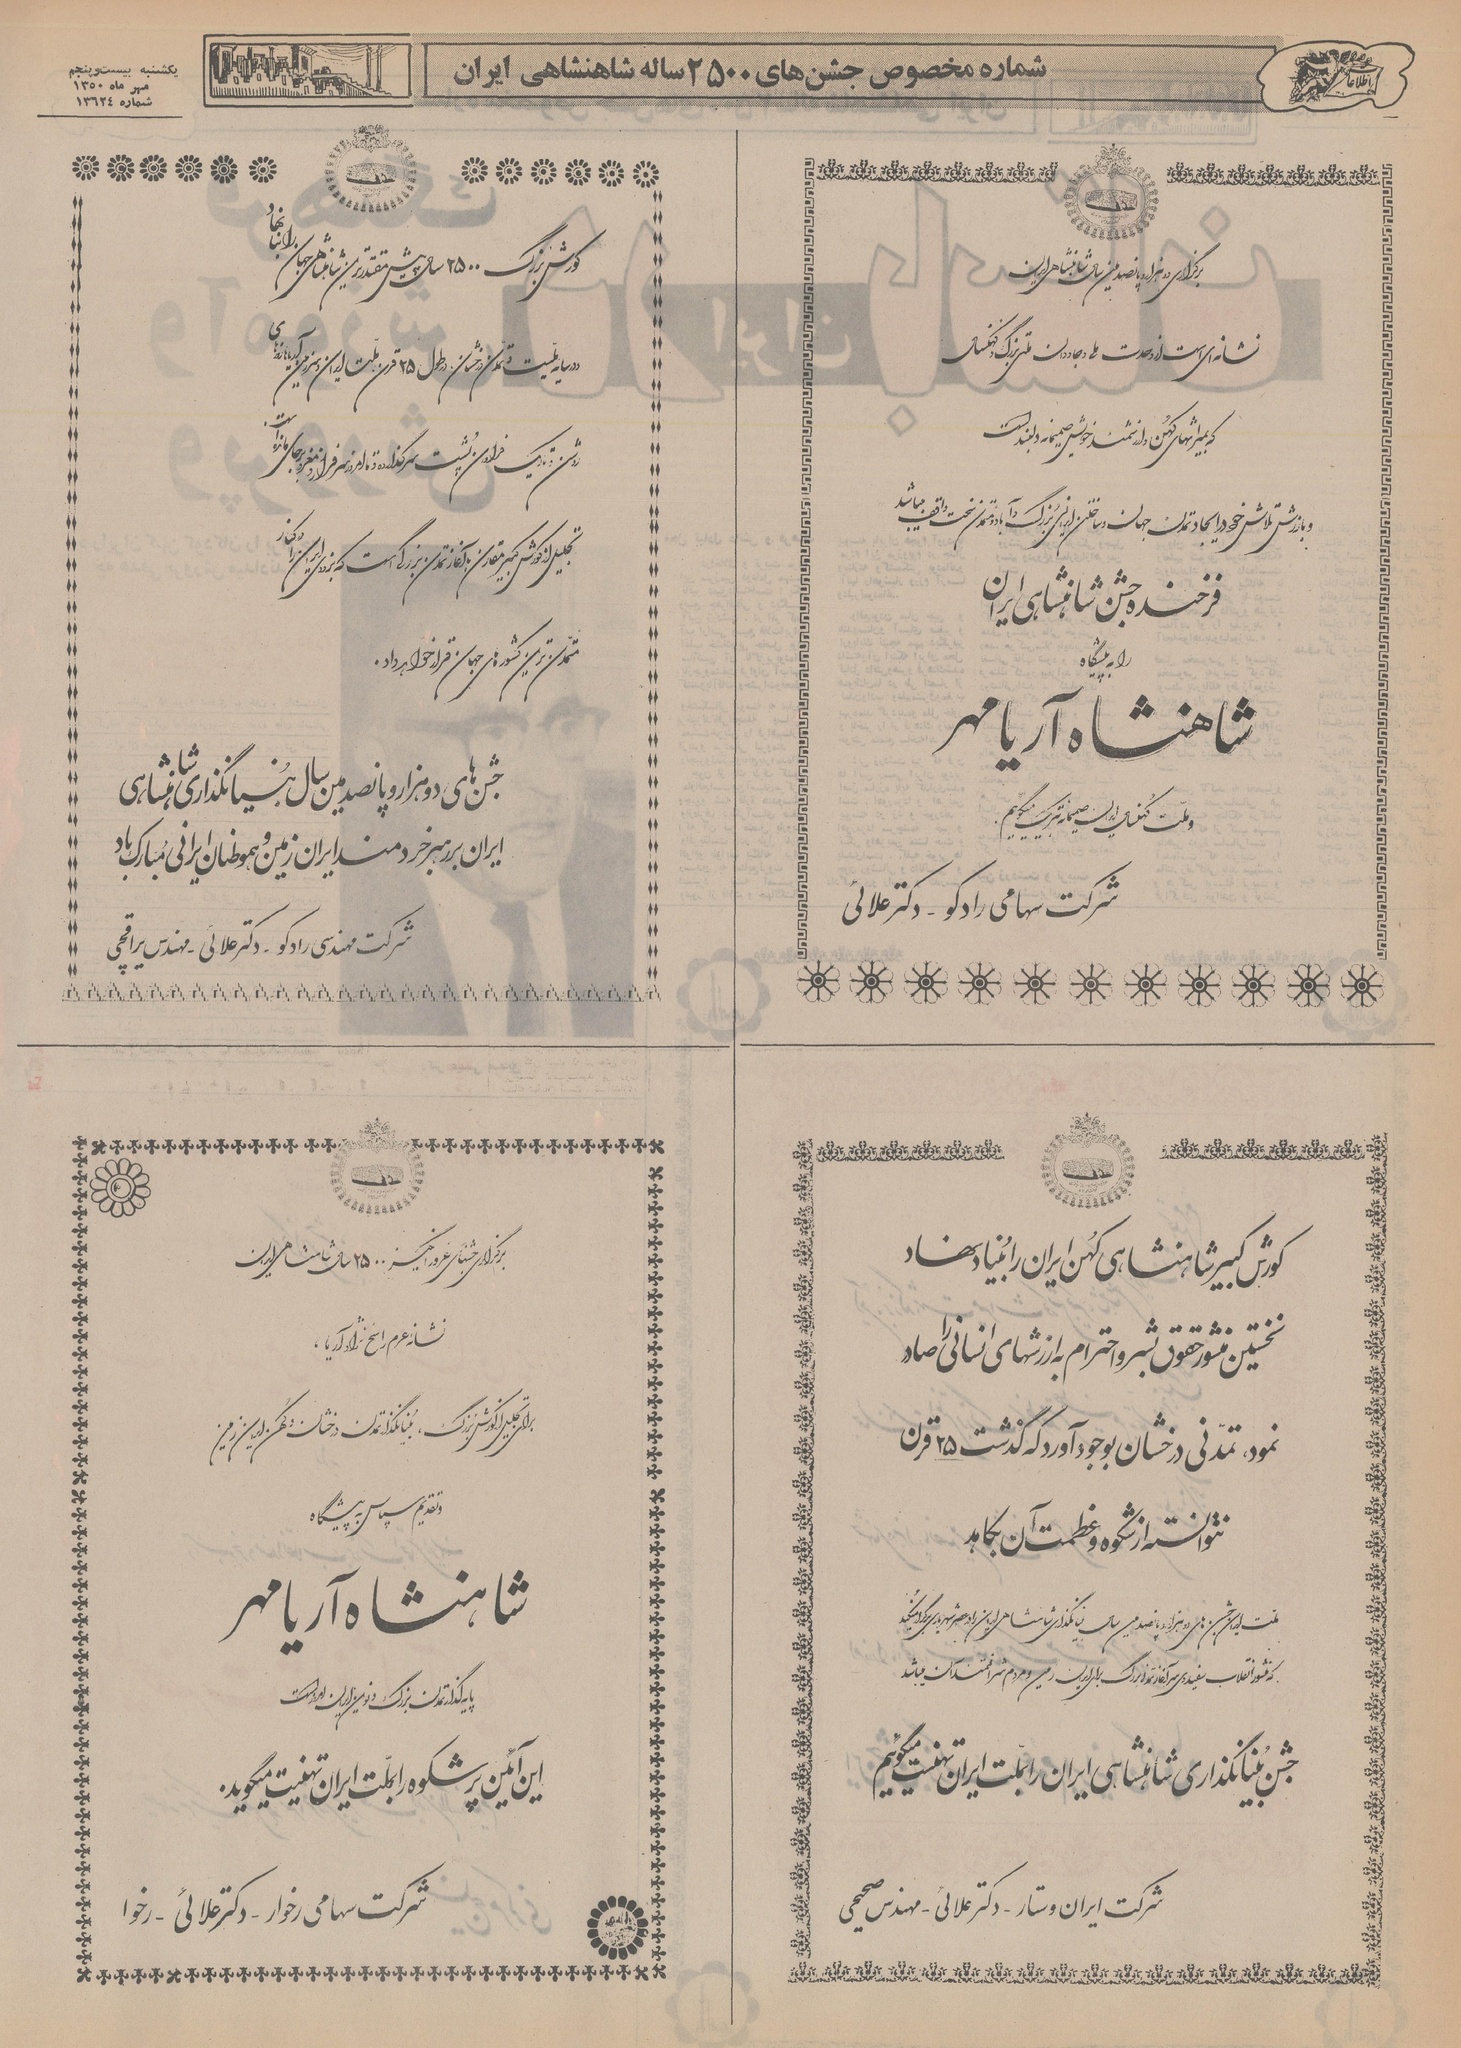 یکشنبه بیست‌وپنجم
مهر ماه ۱۳۵۰
شماره ۱۳۶۲۴
شماره مخصوص جشن‌های ۲۵۰۰ ساله شاهنشاهی ایران
اطلاعات
برگزاری دو هزار و پانصدمین سال شاهنشاهی ایران
نشانه‌ای است از وحدت ملی و جاودان ملتی بزرگ و کهنسال
که بمیراثهای کهن و ارزشمند خویش صمیمانه دلبند است
و بارزش تلاش خود در ایجاد تمدن جهان و ساختن ایرانی بزرگ و آباد و متمدن سخت واقف میباشد
فرخنده جشن شاهنشاهی ایران
را به پیشگاه
شاهنشاه آریامهر
و ملت کهنسال ایران صمیمانه تبریک میگوئیم.
شرکت سهامی رادکو - دکتر علائی
کورش بزرگ ۲۵۰۰ سال پیش مقتدرترین شاهنشاهی جهان را بنا نهاد
در سایه ملیت و تمدن درخشان در طول ۲۵ قرن ملت ایران و سرزمین آریا با روزهای
روشن و تاریک فراوان پشت سر گذارده و تا امروز سرفراز و مغرور بر جای مانده است.
تجلیل از کورش کبیر مقارن با آغاز تمدن بزرگ است که بزودی ایران را در کنار
متمدن ترین کشورهای جهان قرار خواهد داد.
جشن های دو هزار و پانصدمین سال بنیانگذاری شاهنشاهی
ایران بر رهبر خردمند ایران زمین و هموطنان ایرانی مبارک باد
شرکت مهندسی رادکو - دکتر علائی - مهندس یراقچی
کورش کبیر شاهنشاهی کهن ایران را بنیاد نهاد
نخستین منشور حقوق بشر و احترام به ارزشهای انسانی را صادر
نمود، تمدنی درخشان بوجود آورد که گذشت ۲۵ قرن
نتوانسته از شکوه و عظمت آن بکاهد
ملت ایران جشن های دو هزار و پانصدمین سال بنیانگذاری شاهنشاهی ایران را در عصر شهریاری برگزار میکند
که منشور انقلاب سفید وی سرآغاز تمدن بزرگ برای ایران زمین و مردم شرافتمند آن میباشد
جشن بنیانگذاری شاهنشاهی ایران را بملت ایران تهنیت میگوئیم
شرکت ایران وستار - دکتر علائی - مهندس صحیحی
برگزاری جشنهای غرور انگیز ۲۵۰۰ سال شاهنشاهی ایران
نشانه عزم راسخ نژاد آریا،
برای تجلیل از کورش بزرگ، بنیانگذار تمدن درخشان و کهن ایران زمین
و تقدیم سپاس به پیشگاه
شاهنشاه آریامهر
پایه گذار تمدن بزرگ و نوین ایران امروز است
این آئین پرشکوه را بملت ایران تهنیت میگوید.
شرکت سهامی رخوار - دکتر علائی - رخوا